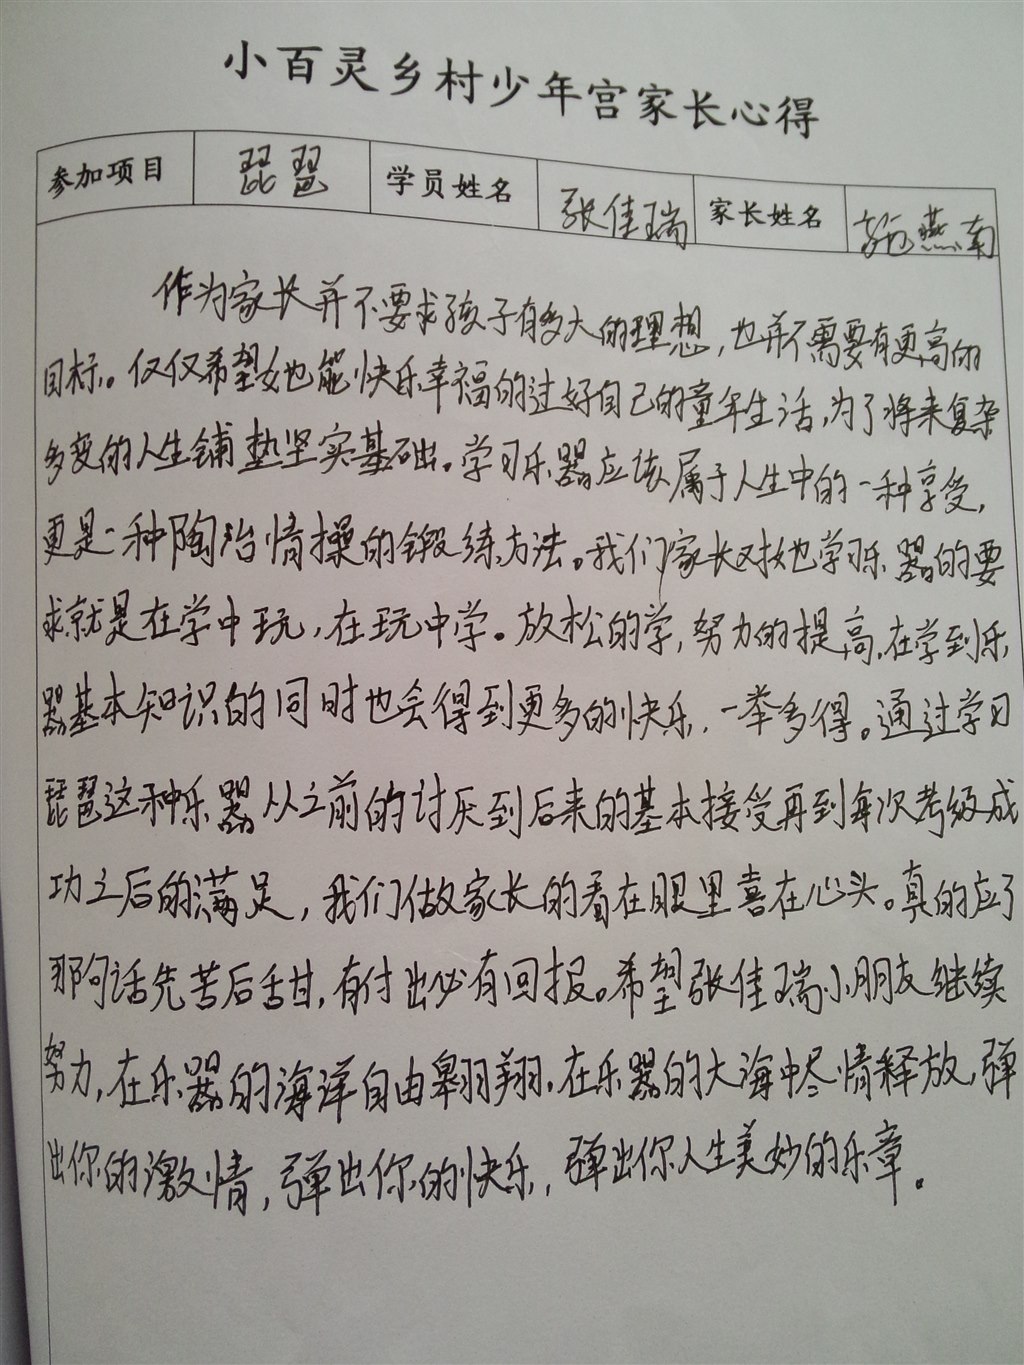 小百灵乡村少年宫家长心得
参加项目 琵琶 学员姓名 张佳瑞 家长姓名 燕南
作为家长并不要求孩子有多大的理想，也并不需要有更高的
目标。仅仅希望她能快乐幸福的过好自己的童年生活，为了将来复杂
多变的人生铺垫坚实基础。学习乐器应该属于人生中的一种享受，
更是一种陶冶情操的锻练方法。我们家长对她学习乐器的要
求就是在学中玩，在玩中学。放松的学，努力的提高，在学到乐
器基本知识的同时也会得到更多的快乐，一举多得。通过学习
琵琶这种乐器从之前的讨厌到后来的基本接受再到每次考级成
功之后的满足，我们做家长的看在眼里喜在心头。真的应了
那句话先苦后甜，有付出必有回报。希望张佳瑞小朋友继续
努力，在乐器的海洋自由翱翔。在乐器的大海中尽情释放，弹
出你的激情，弹出你的快乐，弹出你人生美妙的乐章。